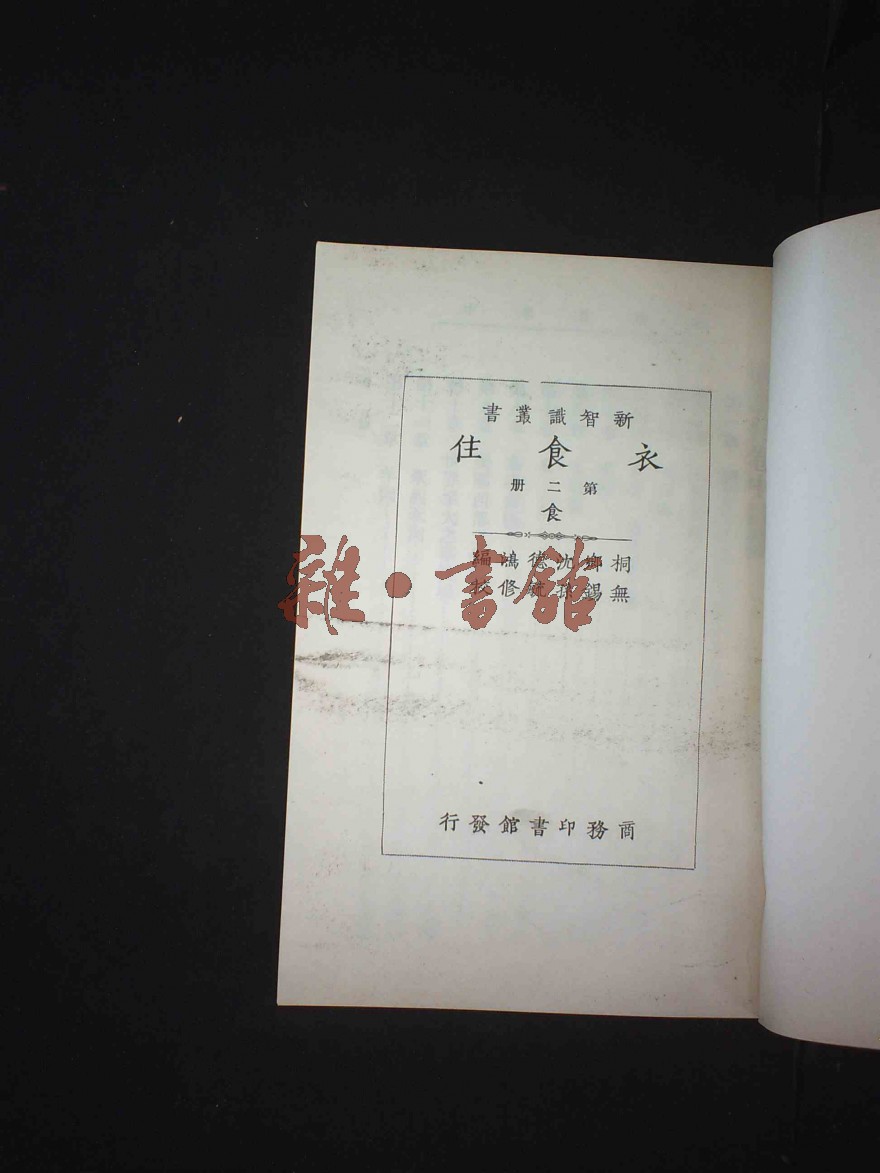 新智識叢書
衣食住
第二册
食
桐鄉沈德鴻編
無錫孫毓修校
雜·書館
商務印書館發行